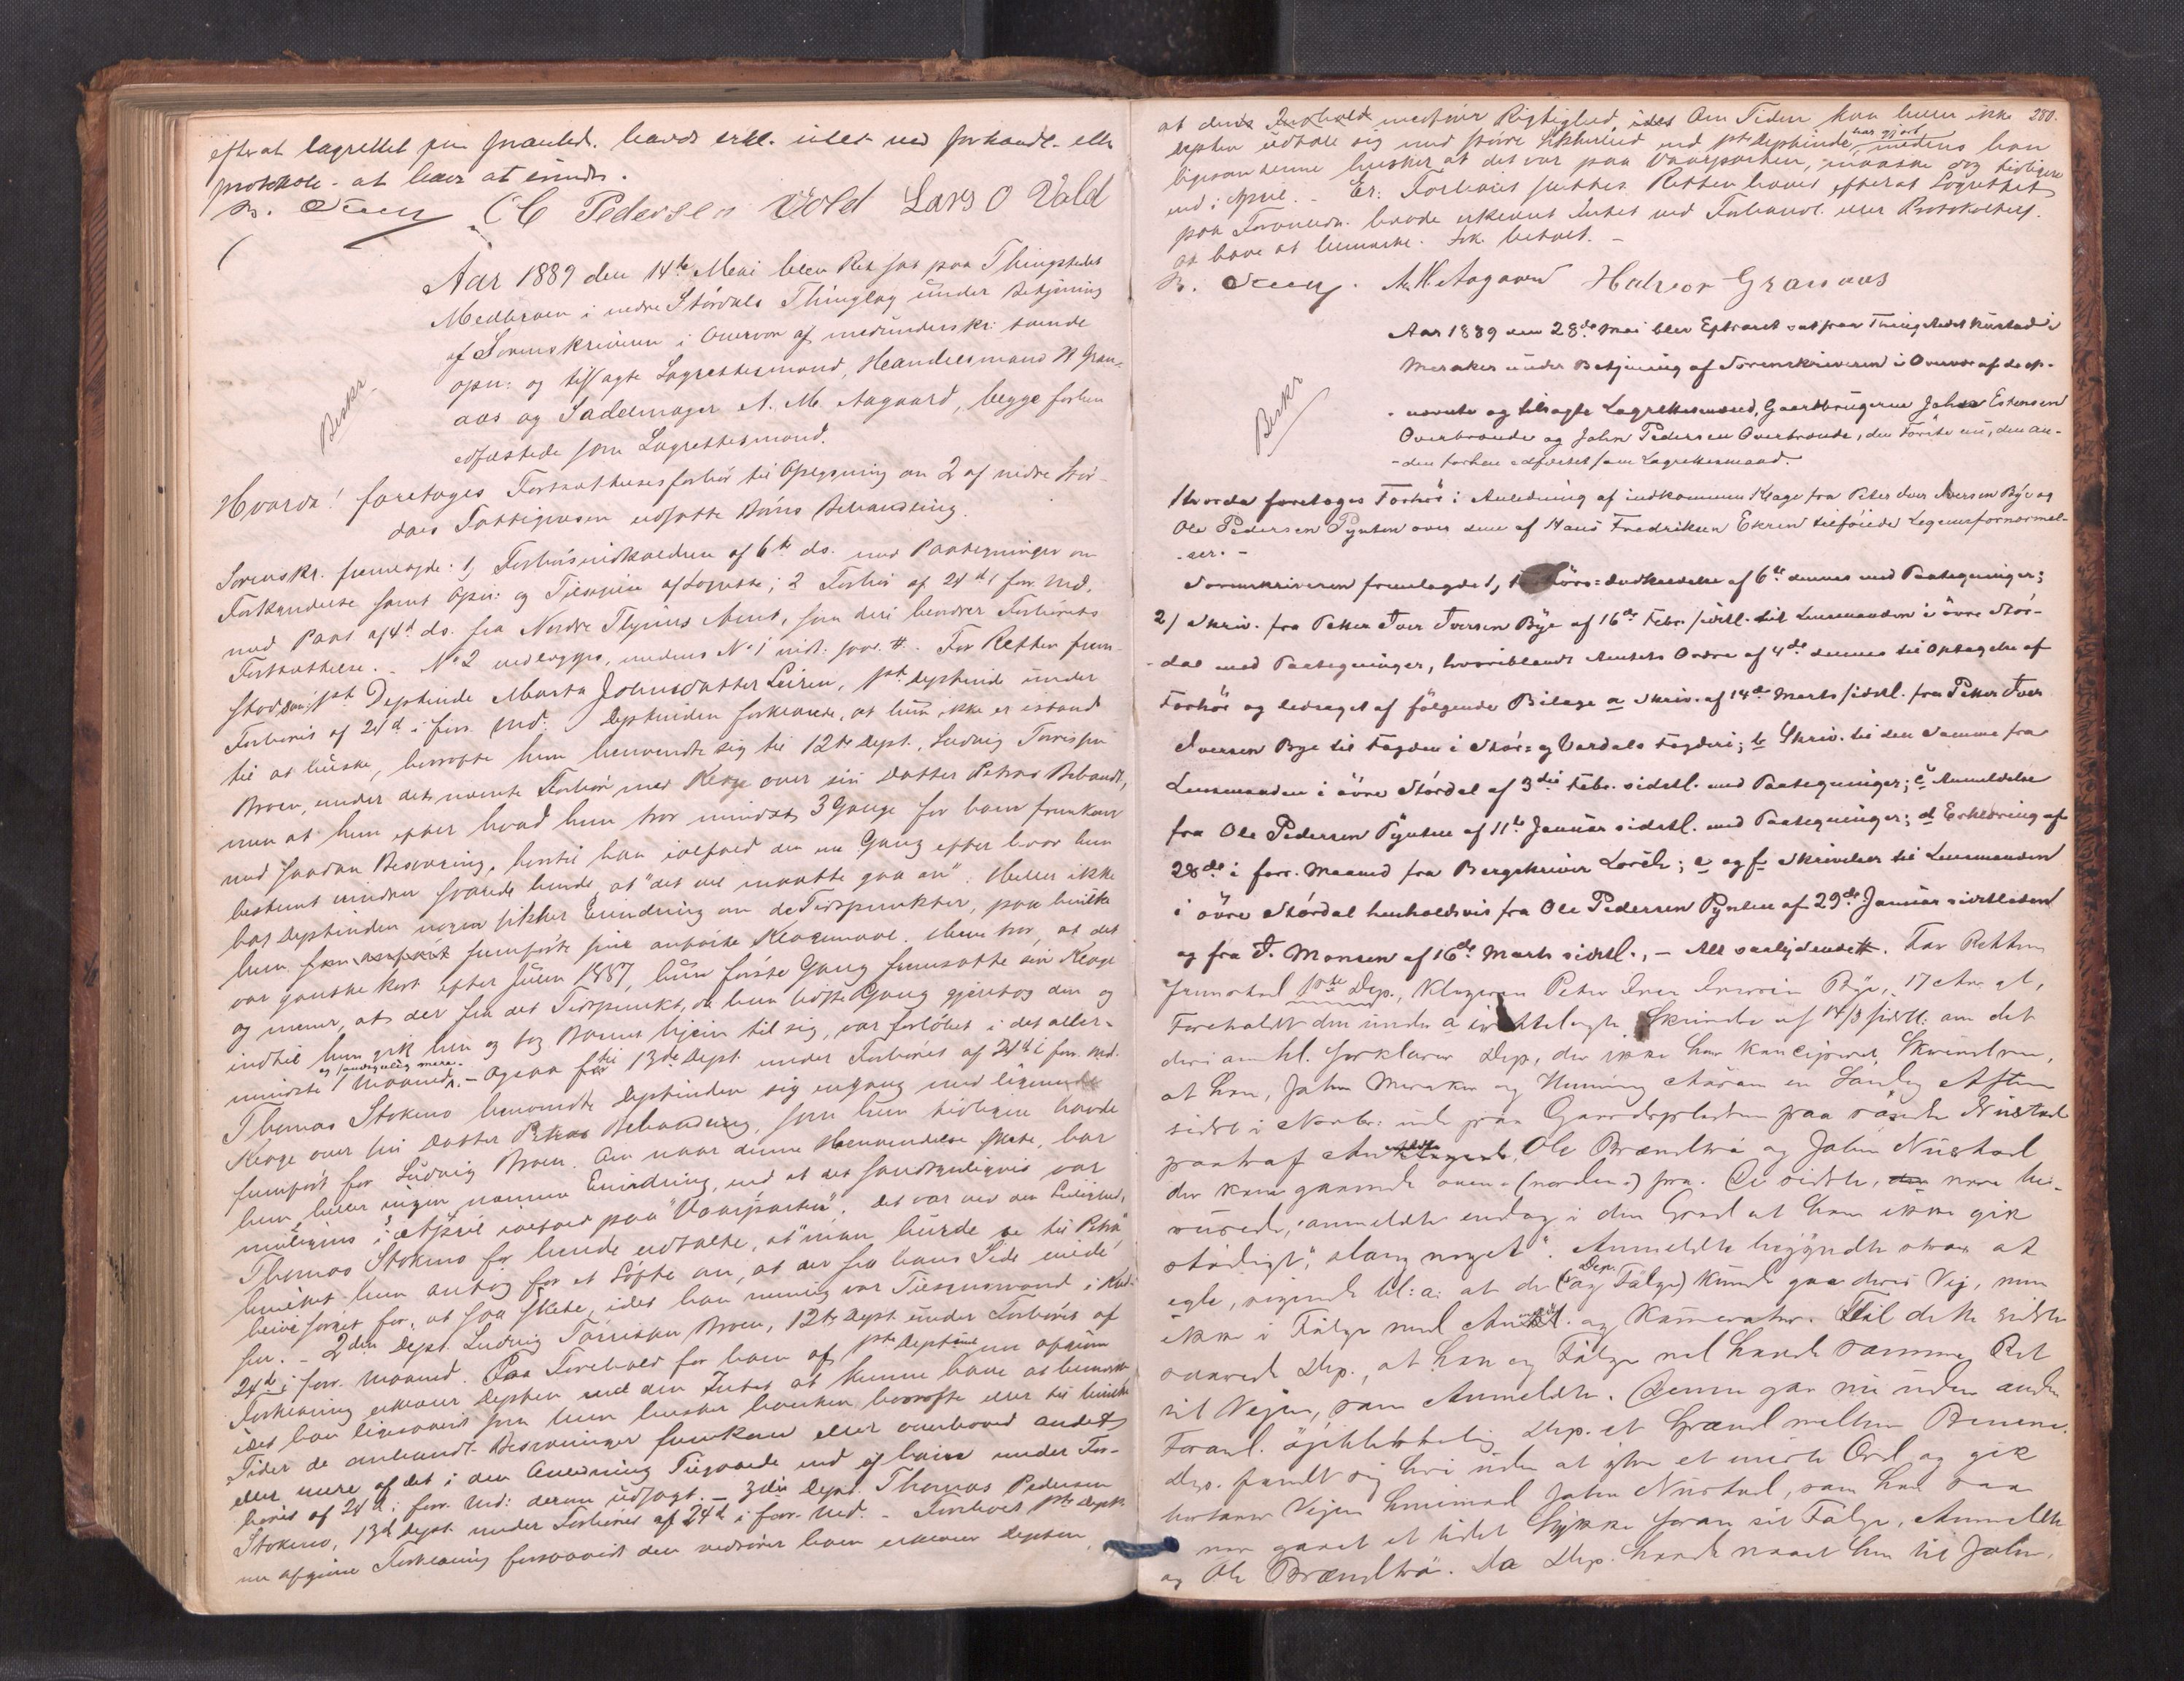 efter at lagrettet paa Foranled. havde erkl. intet ved forhandl. eller
protokoll. at have at erindre.
C C Pedersen Vold Lars O Vold
Aar 1889 den 14de Mai blev Ret sat paa Thingstedet
Medbroen i nedre Stördals Thinglag under Betjening
af Sorenskriveren i Overvær af medunderskr: tvende
opn: og tilsagte Lagrettesmænd, Handelsmand H Gran-
aas og Sadelmager A. M. Aagaard, begge forhen
edfæstede som Lagrettesmænd.
Beskr.
Hvorda! foretoges Fortsættelsesforhör til Oplysning om 2 af nedre Stör-
dals Fattigvæsen udsatte Börns Behandling.
Sorenskr. fremlagde: 1, Forhörsindkaldelse af 6te ds. med Paategninger om
Forkyndelse samt Opn: og Tilsigelse af Lagrette; 2 Forhör af 24de forr. Md.
med Paat af 4de ds. fra Nordre Thjems Amt, som deri beordrer Forhörets
Fortsættelse. - No 2 vedlægges, medens No 1 indt. saal. #. For Retten frem-
stod som 1ste Deptinde Marta Johnsdatter Leiren, 1ste Deptinde under
Forhöret af 24de i forr. Md. Deptinden forklarede, at hun ikke er istand
til at huske, hvorofte hun henvendte sig til 12te Dept., Ludvig Torrissen
Moen, under det nævnte Forhör med Klage over sin Datter Petras Behandl,
men at hun efter hvad hun tror mindst 3 Gange for ham fremkom
med saadan Besværing, hertil han ialfald den ene Gang efter hvad hun
bestemt mindes svarede hende, at "det vel maatte gaa an". Heller ikke
har Deptinden nogen sikker Erindring om de Tidspunkter, paa hvilke
hun fremförte sine anförte Klagemaal. Hun tror, at det
var ganske kort efter Julen 1887, hun förste Gang fremsatte sin Klage
og mener, at der fra det Tidspunkt, da hun sidste Gang gjentog den og
indtil hun gik hen og tog Barnet hjem til sig, var forlöbet i det aller-
mindste 1 Maaned og sandsynlig mere. - Ogsaa til 13de Dept. under Forhöret af 24de i forr. Md.
Thomas Stokmo henvendte Deptinden sig engang med lignende
Klage over sin Datter Petras Behandling, som hun tidligere havde
fremfört for Ludvig Moen. Om naar denne Henvendelse skete, har
hun heller ingen nærmere Erindring, end at det sandsynligvis var
muligens i April ialfald paa "Vaarparten". Det var ved den Leilighed,
Thomas Stokmo for hende udtalte, at "man burde se til Petra",
hvilket hun antog for et Löfte om, at der fra hans Side vilde
blive sörget for, at saa skete, idet han nemlig var Tilsynsmand i Kred-
sen. - 2den Dept. Ludvig Torrissen Moen, 12te Dept. under Forhöret af
24de i forr. Maaned. Paa Forehold for ham af 1ste Deptindens afgivne
Forklaring erklærer Depten ved den Intet at kunne have at bemærke
idet han ligesaavel som hun husker hverken hvorofte eller til hvilke
Tider de omhandl. Besværinger fremkom eller overhoved andet
eller mere af det i den Anledning Tilgaaede end af ham under For-
höret af 24de i forr. Md: derom udsagt. - 3die Dept. Thomas Pedersen
Stokmo, 13de Dept. under Forhöret af 24de i forr. Md. - Foreholdt 1ste Deptn
nu afgivne Forklaring forsaavidt den vedrörer ham erklærer Depten,
280.
at dens Indhold medförer Rigtighed. Om Tiden kan heller ikke
Depten udtale sig med större Sikkerhed end 1ste Deptinde har gjort, medens han
ligesom denne husker at det var paa Vaarparten, maaske dog tidligere
end i April. - Er: Forhöret sluttes. Retten hævet efterat Lagrettet
paa Foranledn. havde erklæret Intet ved Forhandl. eller Protokollatf.
at have at bemærke. Frk. betalt. -
A. M. Aagaard Halvor Granaas
Aar 1889 den 28de Mai blev Extraret sat paa Thingstedet Nustad i
Meraker under Betjening af Sorenskriveren i Overvær af de op-
- nævnte og tilsagte Lagrettesmænd, Gaardbrugerne John Estensen
Overbrænde og John Pedersen Overbrænde, den Förste nu, den an-
- den forhen edfæstet som Lagrettesmand.
Beskr
Hvorda foretoges Forhör i Anledning af indkommen Klage fra Peter Iver Iversen Bye og
Ole Pedersen Pynten over dem af Hans Fredriksen Ekren tilföiede Legemsfornærmel-
- ser. -
Sorenskriveren fremlagde 1, Forhörs-Indkaldelse af 6te dennes med Paategninger;
2) Skriv. fra Peter Iver Iversen Bye af 16de Febr. sidstl. til Lensmanden i övre Stör-
- dal med Paategninger, hvoriblandt Amtets Ordre af 4de dennes til Optagelse af
Forhör og ledsaget af fölgende Bilage a Skriv. af 14de Marts sidstl. fra Peter Iver
Iversen Bye til Fogden i Stör- og Værdals Fogderi; b Skriv. til den Samme fra
Lensmanden i övre Stördal af 3die Febr. sidstl. med Paategninger; c Anmeldelse
fra Ole Pedersen Pynten af 11te Januar sidstl. med Paategninger; d Erklæring af
28de i forr. Maaned fra Bergskriver Lorck; e og f Skrivelser til Lensmanden
i övre Stördal henholdsvis fra Ole Pedersen Pynten af 29de Januar sidstleden
og fra I. Monsen af 16de Marts sidstl., - All saalydende #. For Retten
fremstod 1ste Dep., Klageren Peter Iver Iversen Bye, 17 Aar gl,
Foreholdt den under a irettelagte Skrivelse af 14/3 sidstl. om det
deri omhl. forklarer Dep, der ikke har konciperet Skrivelsen,
at han, John Meraker og Henning Aasan en Söndag Aften
sidst i Novbr: ude paa Gaardspladsen paa söndre Nustad
paatraf Anmeldte, Ole Brændtrö og John Nustad
der kom gaaende oven- (norden-) fra. De sidste, vare be-
rusede, anmeldte endog i den Grad at han ikke gik
stödigt, "slang noget". Anmeldte begyndte strax at
egle, sigende bl: a: at de (Dep. og Fölge) kunde gaa deres Vej, men
ikke i Fölge med Anmeldt. og Kamerater. Til dette sidste
svarede Dep., at han og Fölge vel havde samme Ret
til Vejen, som Anmeldte. Denne gav nu uden anden
Foranl. öjeblikkelig Dep. et Spænd mellem Benene.
Dep. fandt sig heri uden at ytre et eneste Ord og gik
bortover Vejen hvorimod John Nustad, som hed saa
var gaaet et lidet Stykke foran sit Fölge, Anmeldte
og Ole Brændtrö. Da Dep. havde naaet hen til John,